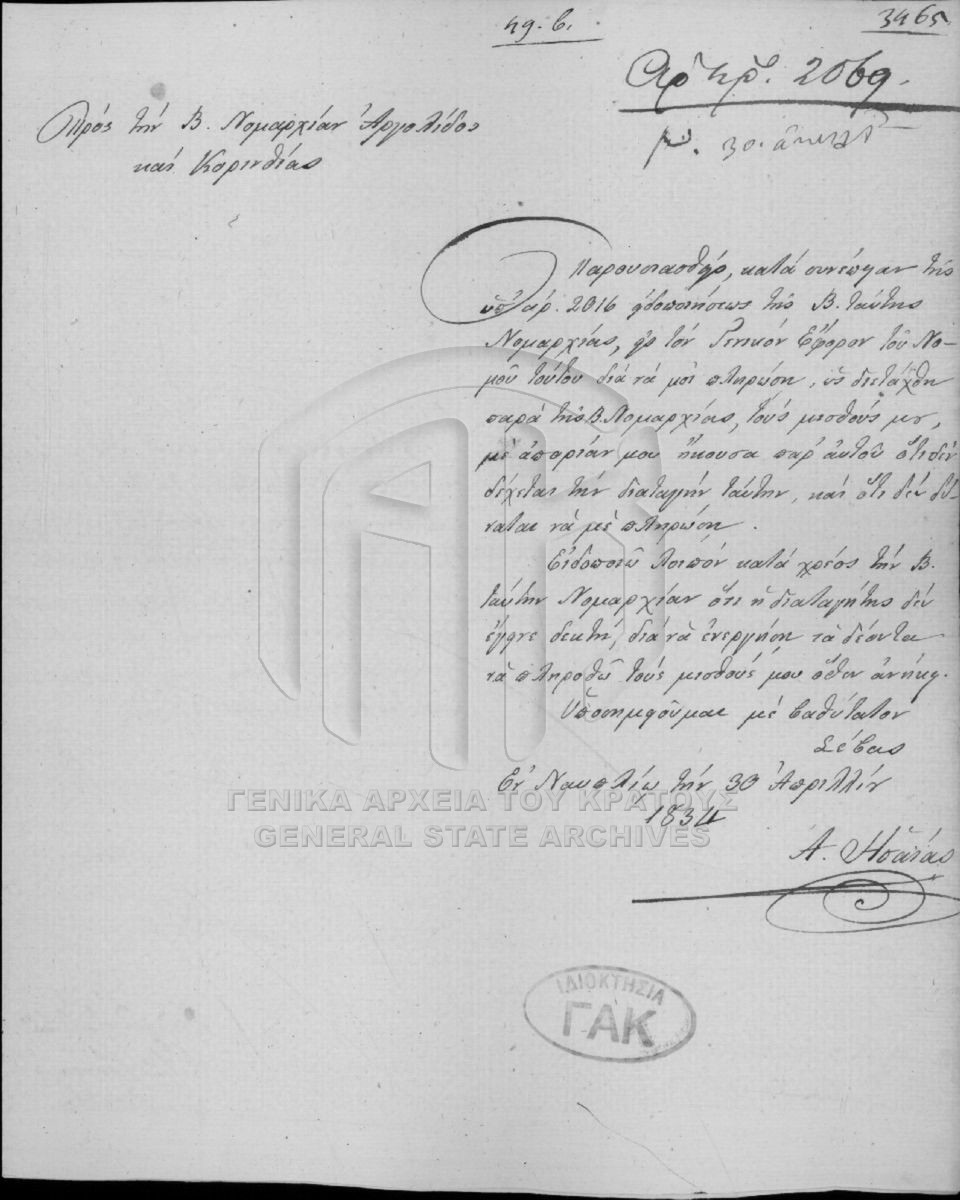 49. β.
3465
Αρ. Πρ. 2069.
30.
Πρός τήν Β. Νομαρχίαν Ἀργολίδος
καί Κορινθίας
Παρουσιασθείς, κατά συνέπειαν τῆς
ὑπ' ἀρ. 2016 εἰδοποιήσεως τῆς Β. ταύτης
Νομαρχίας, εἰς τόν Γενικόν Ἔφορον τοῦ Νο-
μοῦ τούτου διά νά μοί πληρώση, ὡς διετάχθη
παρά τῆς Β. Νομαρχίας, τούς μισθούς μου,
μέ ἀπορίαν μου ἤκουσα παρ' αὐτοῦ ὅτι δέν
δέχεται τήν διαταγήν ταύτην, καί ὅτι δέν δύ-
ναται νά μέ πληρώση.
Εἰδοποιῶ λοιπόν κατά χρέος τήν Β.
ταύτην Νομαρχίαν ὅτι ἡ διαταγή της δέν
ἔγεινε δεκτή, διά νά ἐνεργήση τά δέοντα
νά πληροθῶ τούς μισθούς μου ὅθεν ἀνήκει.
Ὑποσημειοῦμαι μέ βαθύτατον
Σέβας
Ἐν Ναυπλίῳ τήν 30 Ἀπριλλίου
1834
Α. Ησαΐας
ΓΕΝΙΚΑ ΑΡΧΕΙΑ ΤΟΥ ΚΡΑΤΟΥΣ
GENERAL STATE ARCHIVES
ΙΔΙΟΚΤΗΣΙΑ
ΓΑΚ